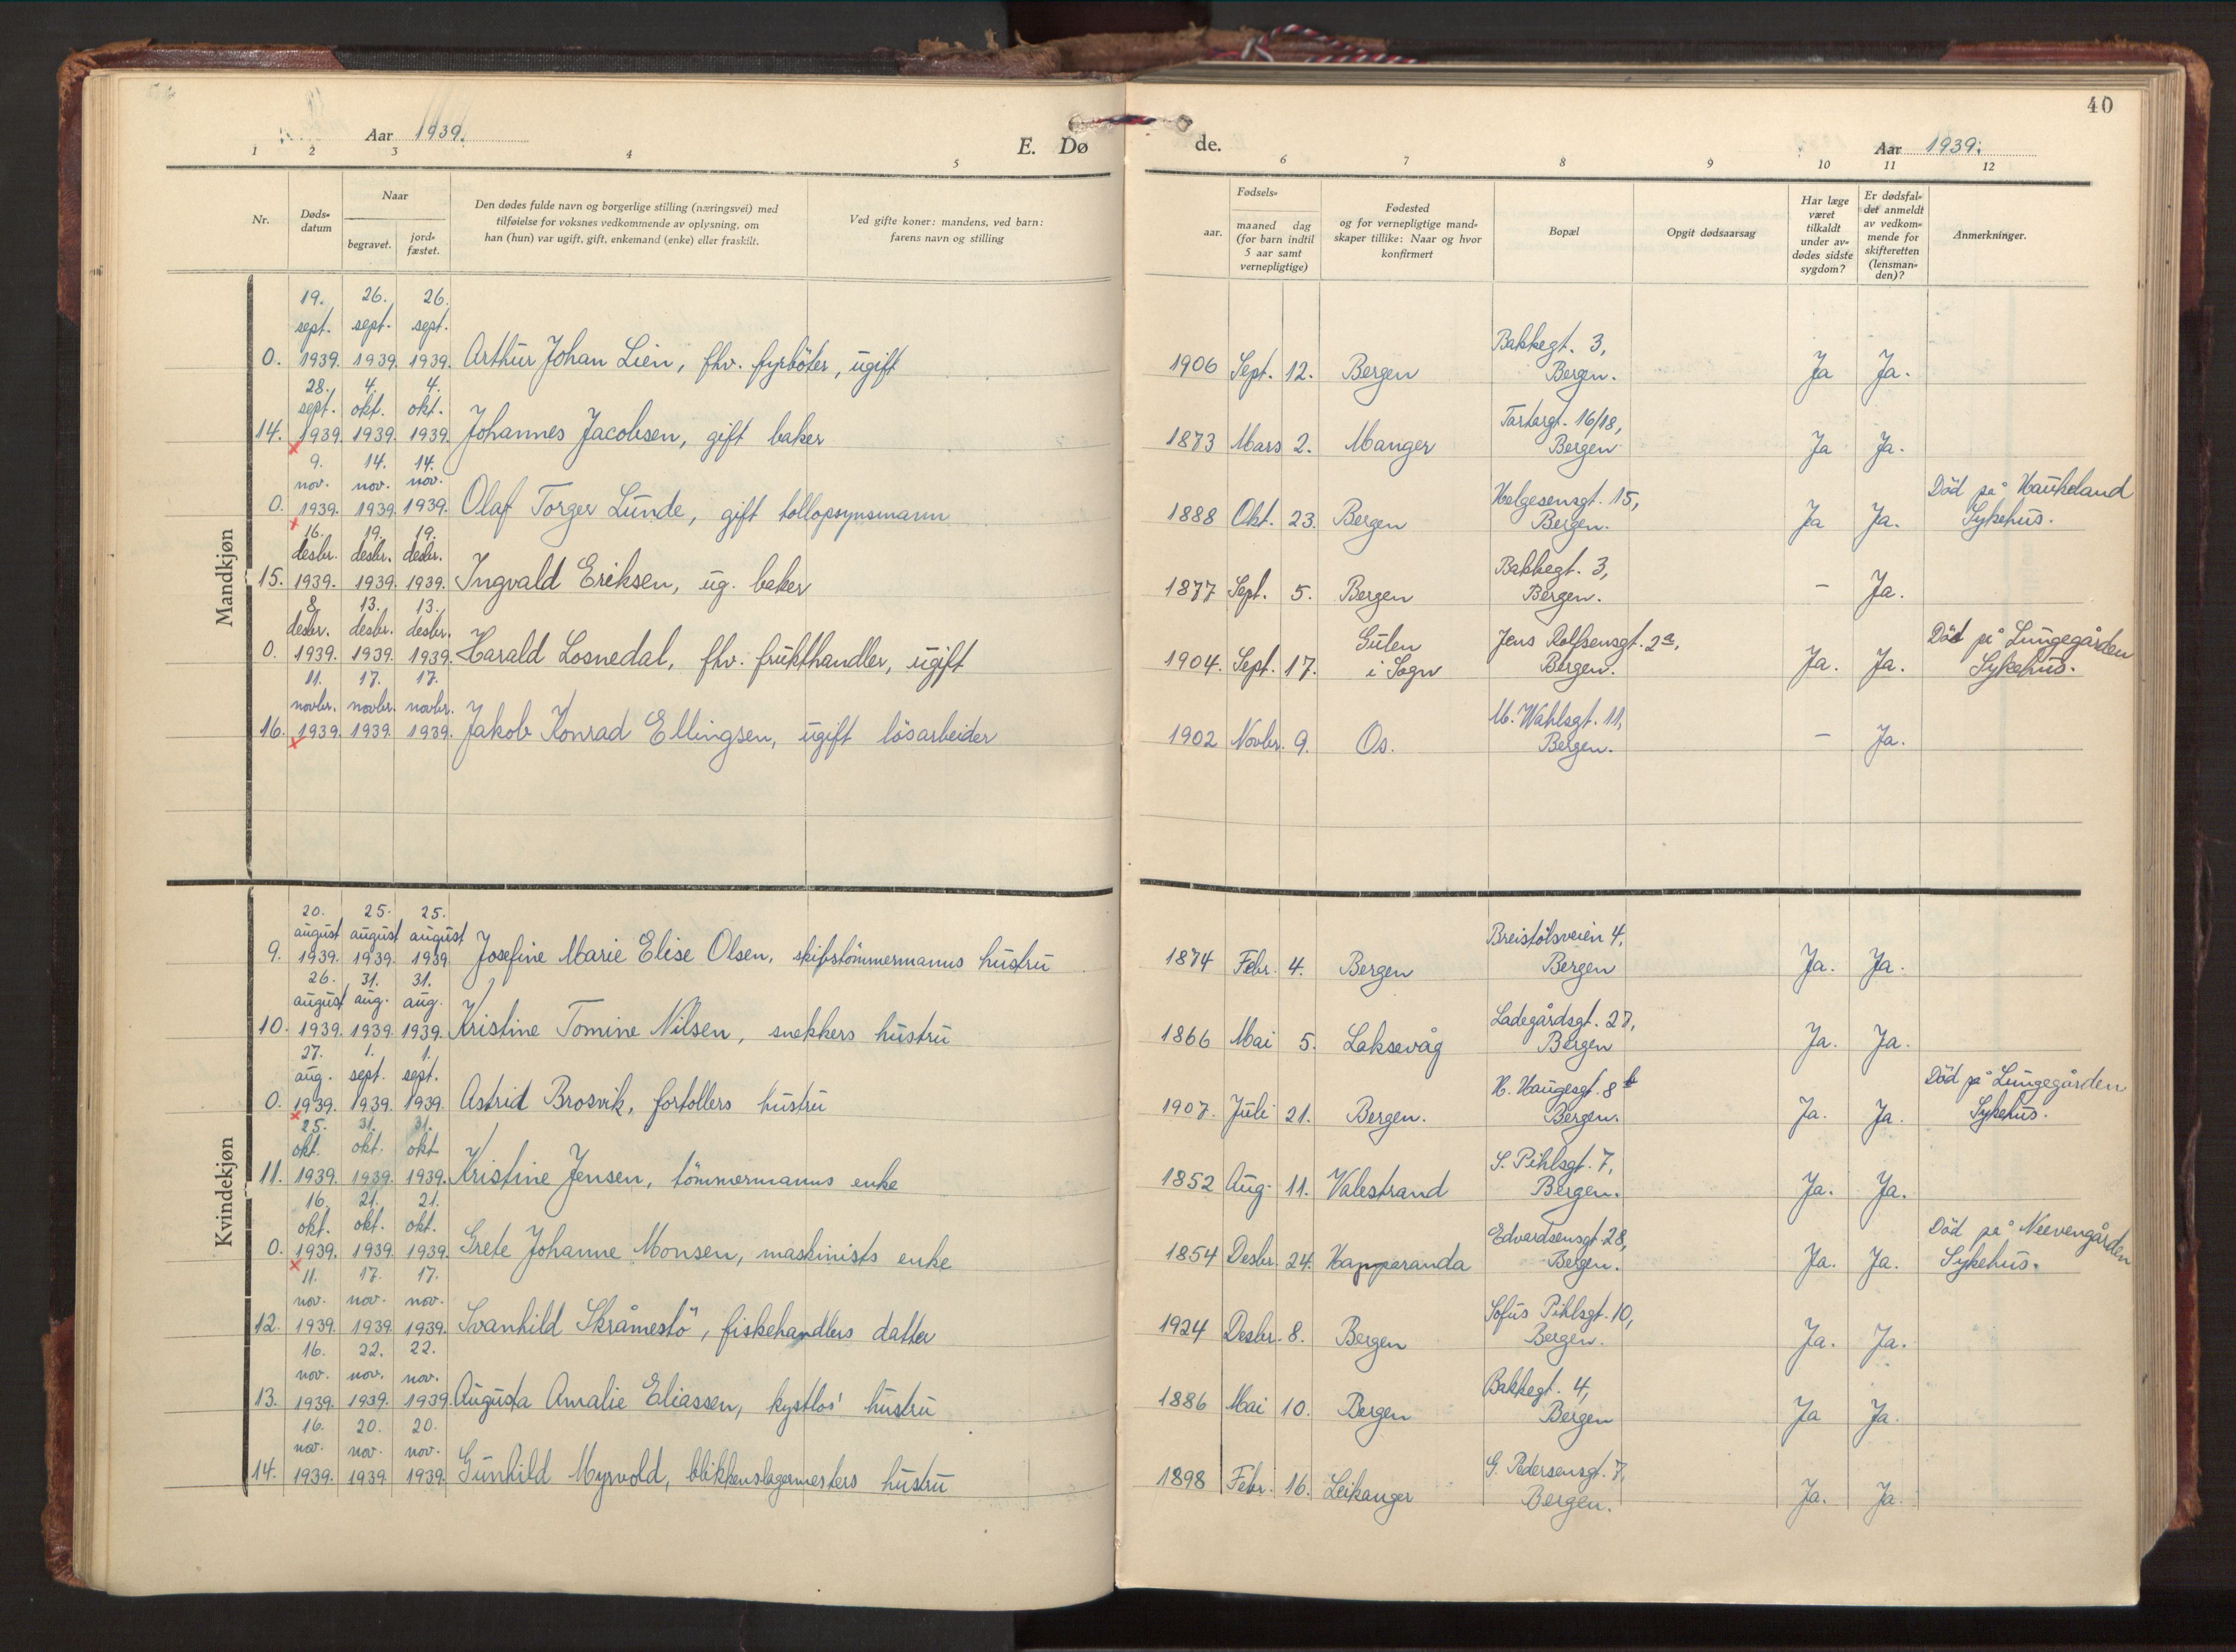 40
Aar 1939.
E. Dø de.
Aar 1939.
1 2 3 4 5 6 7 8 9 10 11 12
Nr.
Døds-
datum
Naar
begravet.
jord-
fæstet.
Den dødes fulde navn og borgerlige stilling (næringsvei) med
tilføielse for voksnes vedkommende av oplysning, om
han (hun) var ugift, gift, enkemand (enke) eller fraskilt.
Ved gifte koner: mandens, ved barn:
farens navn og stilling
Fødsels-
aar.
maaned dag
(for barn indtil
5 aar samt
vernepligtige)
Fødested
og for vernepligtige mand-
skaper tillike: Naar og hvor
konfirmert
Bopæl
Opgit dødsaarsag
Har læge
været
tilkaldt
under av-
dødes sidste
sygdom?
Er dødsfal-
det anmeldt
av vedkom-
mende for
skifteretten
(lensman-
den)?
Anmerkninger.
Mandkjøn
19. 26. 26.
sept. sept. sept. Bakkegt. 3,
0. 1939. 1939. 1939. Arthur Johan Lien, fhv. fyrböter, ugift 1906 Sept. 12. Bergen Bergen. Ja Ja.
28. 4. 4.
sept. okt. okt. Tartargt. 16/18,
14. 1939. 1939. 1939. Johannes Jacobsen, gift baker 1873 Mars 2. Manger Bergen Ja Ja.
9. 14. 14.
nov. nov. nov. Helgesensgt. 15, Död på Haukeland
0. 1939. 1939. 1939. Olaf Torger Lunde, gift tollopsynsmann 1888 Okt. 23. Bergen Bergen. Ja Ja. Sykehus.
16. 19. 19.
desbr. desbr. desbr. Bakkegt. 3,
15. 1939. 1939. 1939. Ingvald Eriksen, ug. baker 1877 Sept. 5. Bergen Bergen. – Ja.
8. 13. 13.
desbr. desbr. desbr. Gulen Jens Rolfsensgt. 2a, Död på Lungegården
0. 1939. 1939. 1939. Harald Losnedal, fhv. frukthandler, ugift 1904. Sept. 17. i Sogn Bergen. Ja. Ja. Sykehus.
11. 17. 17.
novbr. novbr. novbr. M. Wahlsgt. 11,
16. 1939. 1939. 1939. Jakob Konrad Ellingsen, ugift lösarbeider 1902 Novbr. 9. Os. Bergen. – Ja.
Kvindekjøn
20. 25. 25.
august august august Breistölsveien 4,
9. 1939. 1939. 1939 Josefine Marie Elise Olsen, skipstömmermanns hustru 1874 Febr. 4. Bergen Bergen Ja. Ja.
26. 31. 31.
august aug. aug. Ladegårdsgt. 27,
10. 1939. 1939. 1939. Kristine Tomine Nilsen, snekkers hustru 1866 Mai 5. Laksevåg Bergen Ja. Ja.
27. 1. 1.
aug. sept. sept. H. Haugesgt. 8b Död på Lungegården
0. 1939. 1939. 1939. Astrid Brosvik, fortollers hustru 1907. Juli 21. Bergen. Bergen. Ja. Ja. Sykehus.
25. 31. 31.
okt. okt. okt S. Pihlsgt. 7,
11. 1939. 1939. 1939. Kristine Jensen, tömmermanns enke 1852 Aug. 11. Valestrand Bergen. Ja. Ja.
16. 21. 21.
okt. okt. okt. Edvardsensgt 28, Död på Neevengården
0. 1939. 1939. 1939. Grete Johanne Monsen, maskinists enke 1854 Desbr. 24. Happaranda Bergen. Ja. Ja. Sykehus.
11. 17. 17.
nov. nov. nov. Sofus Pihlsgt. 10,
12. 1939. 1939 1939. Svanhild Skråmestö, fiskehandlers datter 1924 Desbr. 8. Bergen Bergen. Ja. Ja.
16. 22. 22.
nov. nov. nov. Bakkegt. 4,
13. 1939. 1939. 1939. Augusta Amalie Eliassen, kystlos' hustru 1886 Mai 10. Bergen Bergen Ja Ja.
16. 20. 20.
nov. nov. nov. G. Pedersensgt. 7,
14. 1939. 1939 1939. Gunhild Myrvold, blikkenslagermesters hustru 1898 Febr. 16. Leikanger Bergen. Ja. Ja.